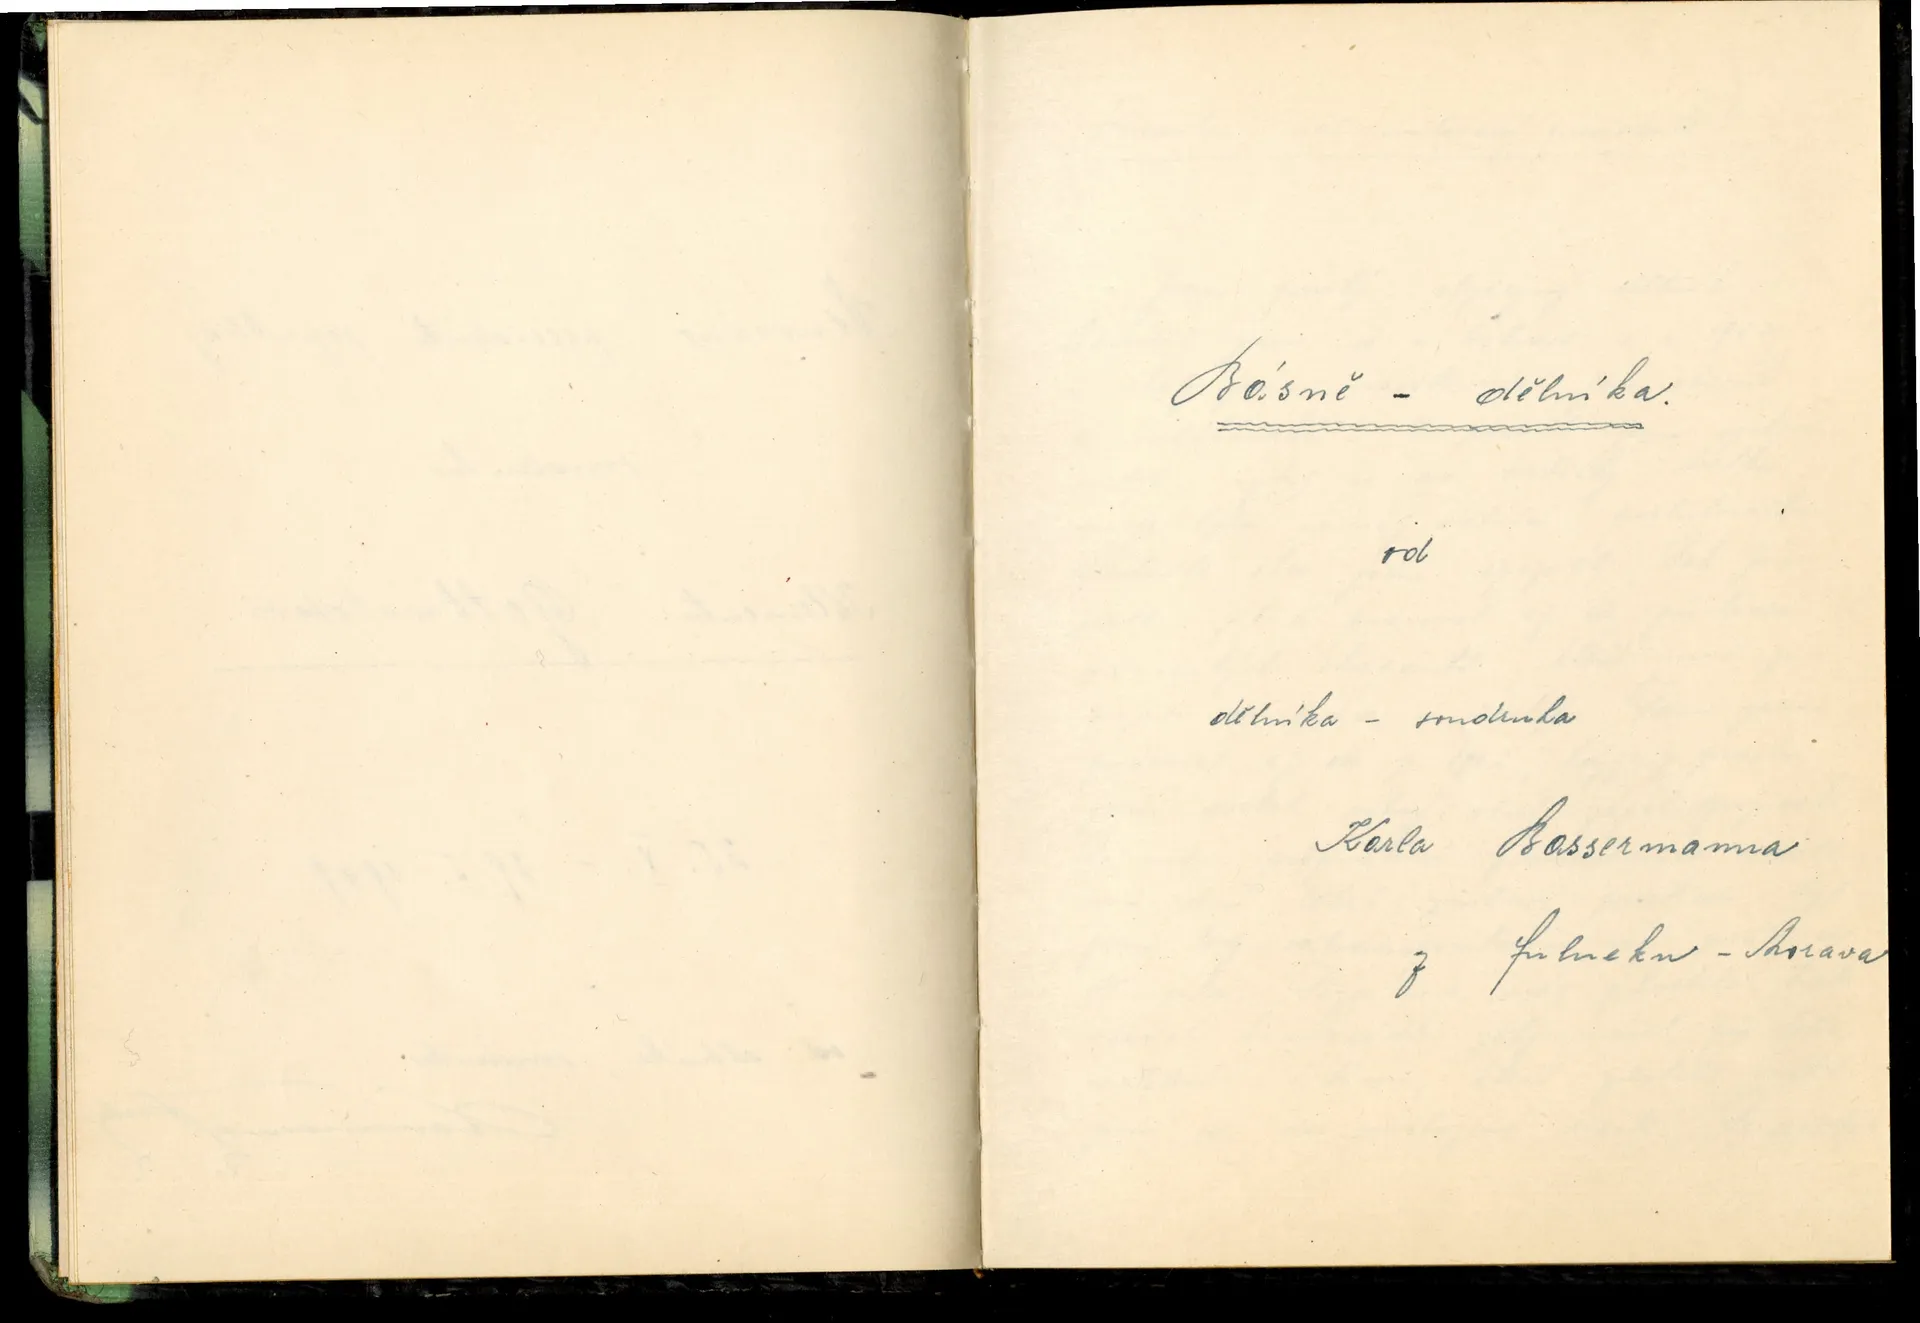 Básně - dělníka.
od
dělníka - soudruha
Karla Bassermanna
z Fulneku - Morava